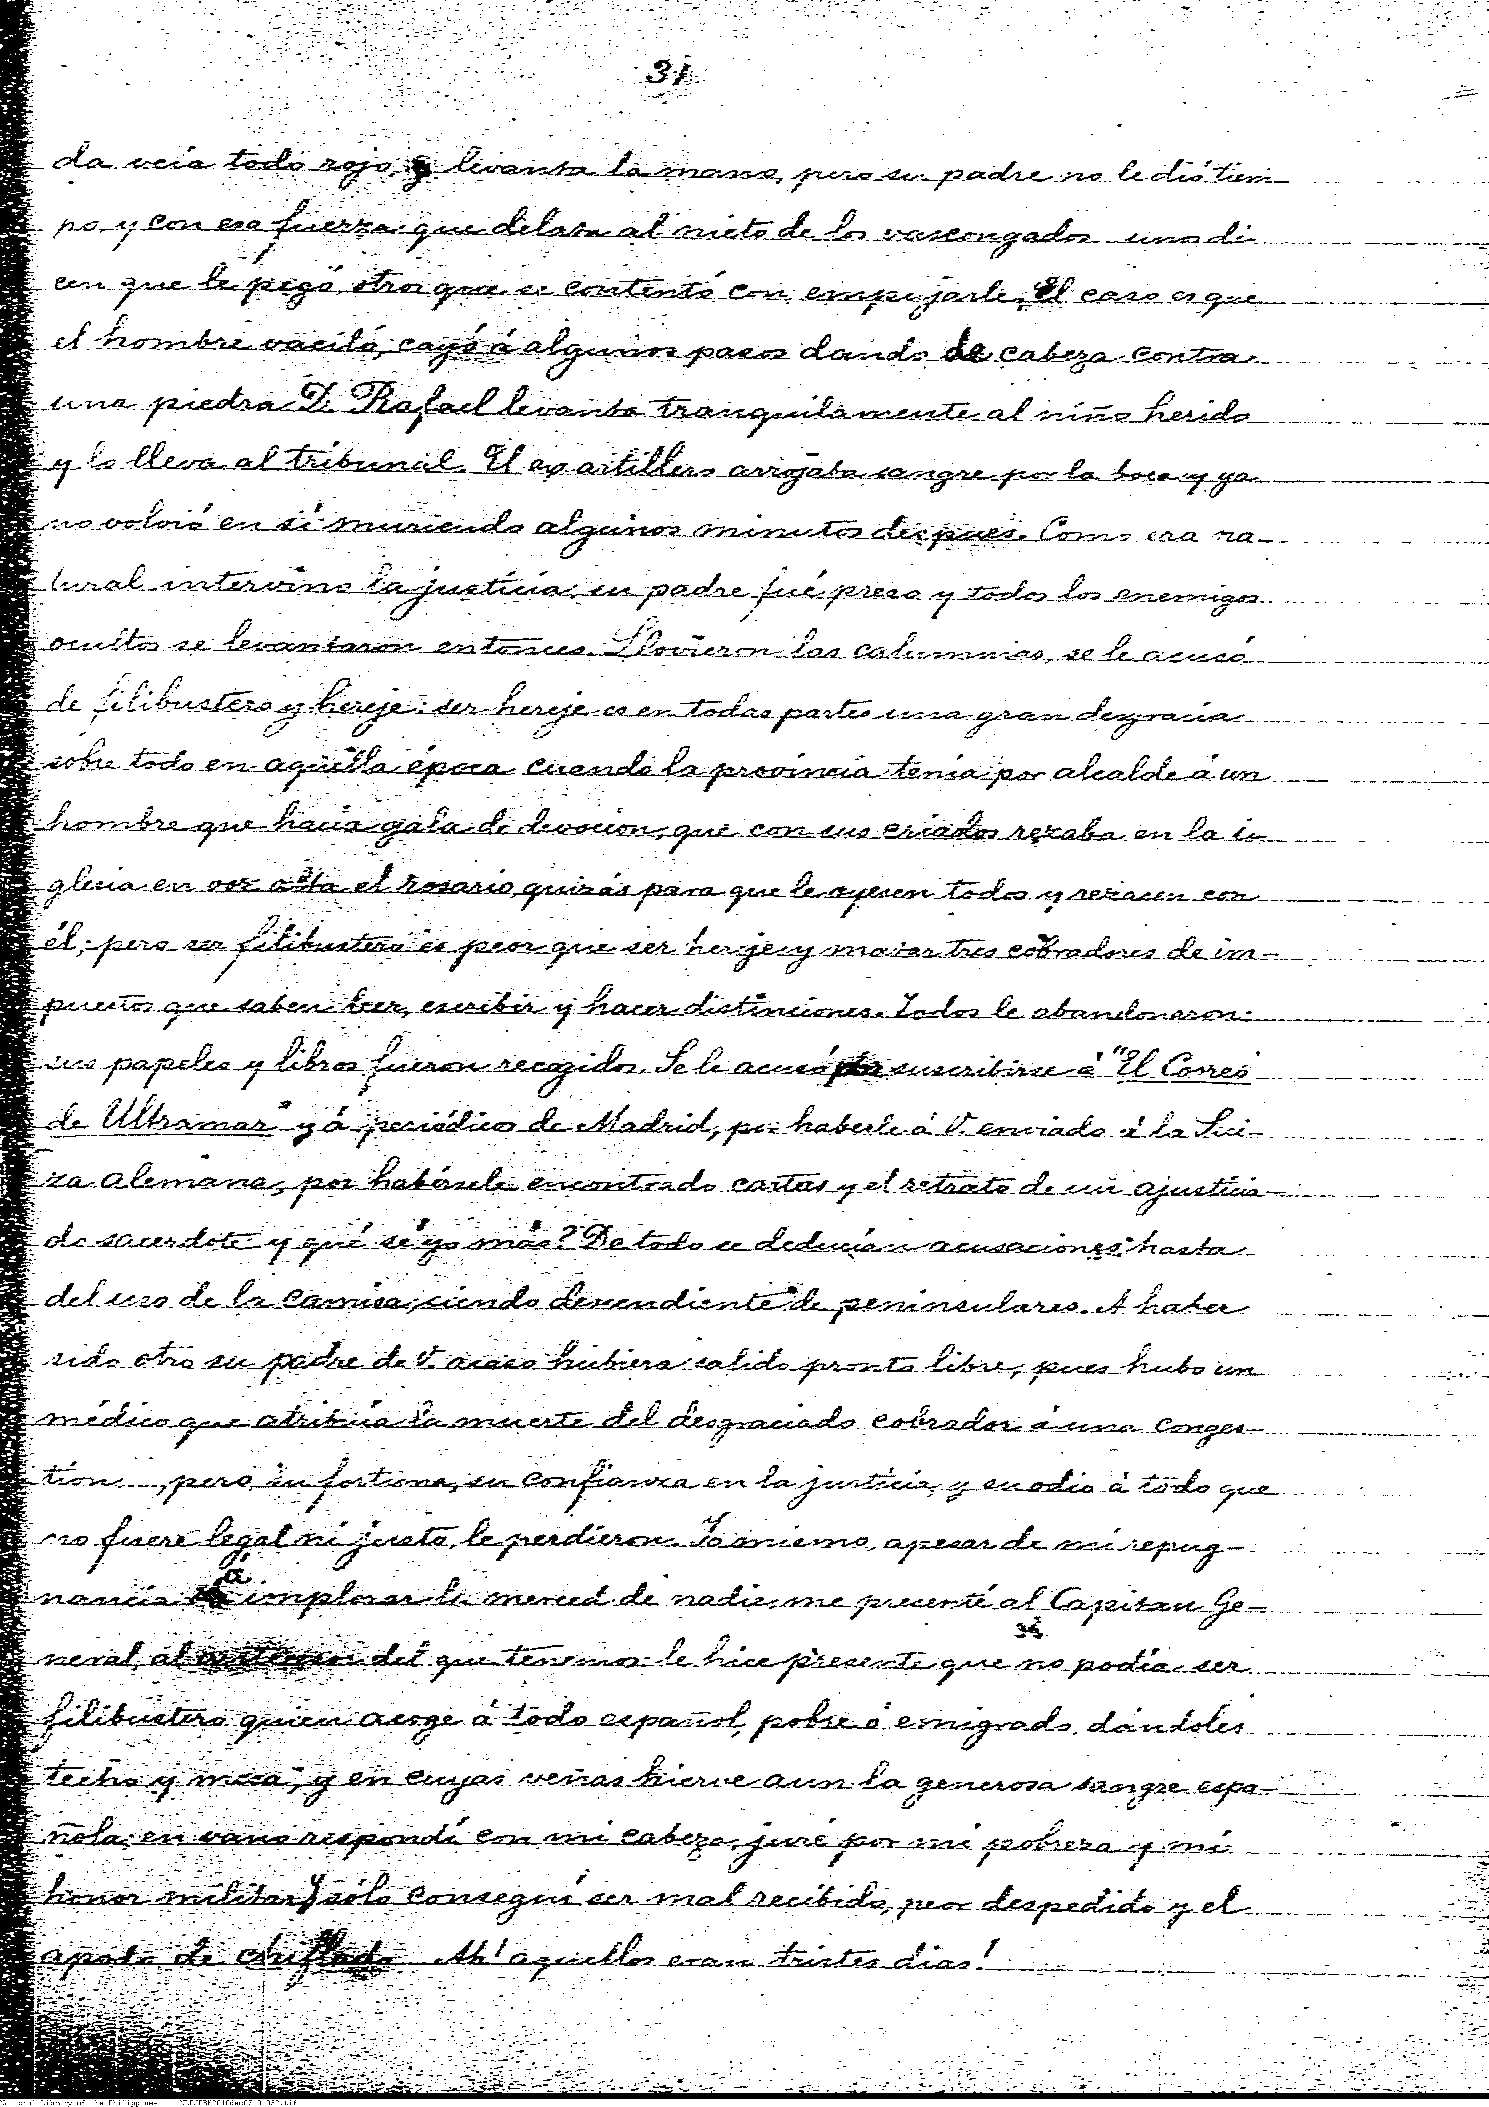 31
da veia todo rojo, y levanta la mano, pero su padre no le dió tiem-
po, y con esa fuerza que delata al nieto de los vascongados unos di
cen que le pegó, otros que se contentó con empujarle. El caso es que
el hombre vaciló, cayó á algunos pasos dando de cabeza contra
una piedra. D. Rafael levanta tranquilamente al niño herido
y lo lleva al tribunal. El ex artillero arrojaba sangre por la boca y ya
no volvió en sí muriendo algunos minutos despues. Como era na-
tural intervino la justicia; su padre fué preso y todos los enemigos
ocultos se levantaron entonces. Llovieron las calumnias, se le acusó
de filibustero y hereje: ser hereje es en todas partes una gran desgracia
sobre todo en aquella época cuando la provincia tenía por alcalde á un
hombre que hacía gala de devocion, que con sus criados rezaba en la i-
glesia en voz alta el rosario, quizás para que le oyesen todos y rezasen con
él; pero ser filibustero es peor que ser hereje y matar tres cobradores de im-
puestos que saben leer, escribir y hacer distinciones. Todos le abandonaron:
sus papeles y libros fueron recogidos. Se le acusó por suscribirse á "El Correo
de Ultramar" y á periódicos de Madrid, por haberle á V. enviado á la Sui-
za Alemana, por habérsele encontrado cartas y el retrato de un ajusticia-
do sacerdote y qué sé yo más? De todo se deducían acusaciones hasta
del uso de la camisa, siendo descendiente de peninsulares. A haber
sido otro su padre de V. acaso hubiera salido pronto libre, pues hubo un
médico que atribuía la muerte del desgraciado cobrador á una conges-
tion, pero su fortuna, su confianza en la justicia, y su odio á todo que
no fuere legal ni justo, le perdieron. Yo mismo, apesar de mi repug-
nancia á implorar la merced de nadie, me presenté al Capitan Ge-
neral, al antecesor del que tenemos: le hice presente que no podía ser
filibustero quien acoge á todo español, pobre ó emigrado, dándoles
techo y mesa, y en cuyas venas hierve aun la generosa sangre espa-
ñola; en vano respondí con mi cabeza, juré por mi pobreza y mi
honor militar, y sólo conseguí ser mal recibido, peor despedido y el
apodo de chiflado. Ah! aquellos eran tristes dias!